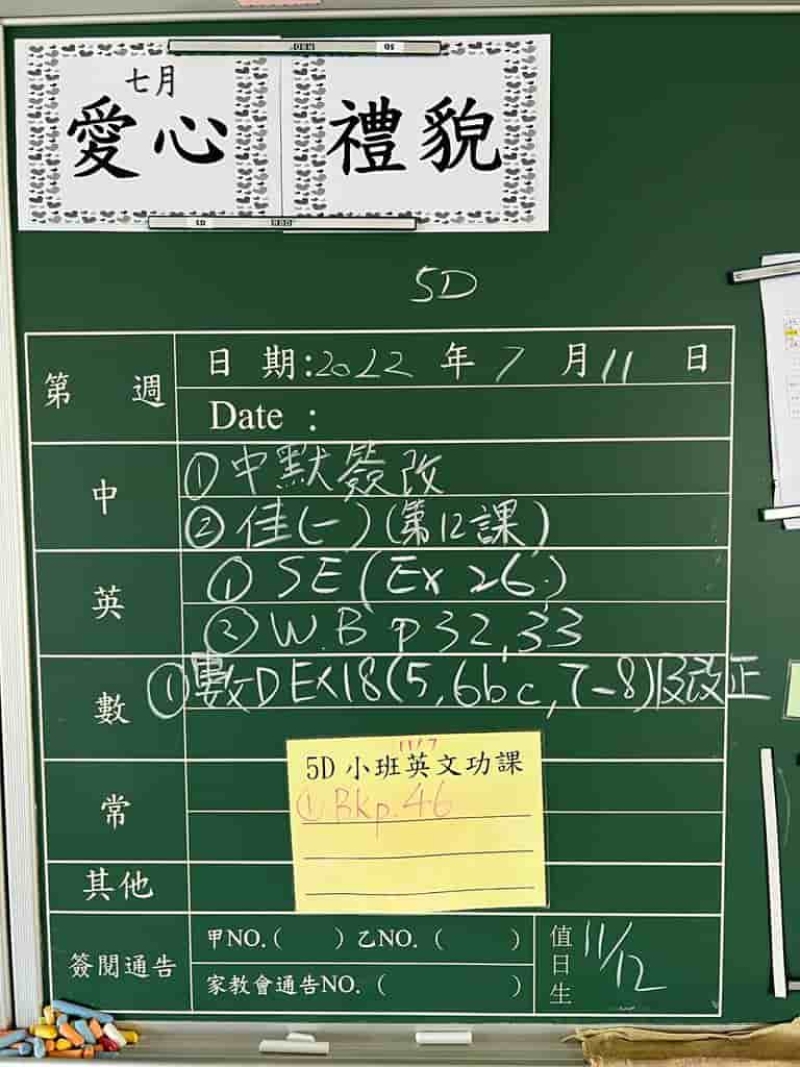 七月
愛心 禮貌
5D
第 週
日 期:2022 年 7 月 11 日
Date :
中
①中默簽改
②佳(一)(第12課)
英
① SE (Ex 26)
② W.B p32,33
數
①數D EX18(5,6bc,7-8)及改正
11/7
5D 小班英文功課
① Bk p.46
常
其他
簽閱通告
甲NO.( ) 乙NO.( )
家教會通告NO.( )
值日生
11/12